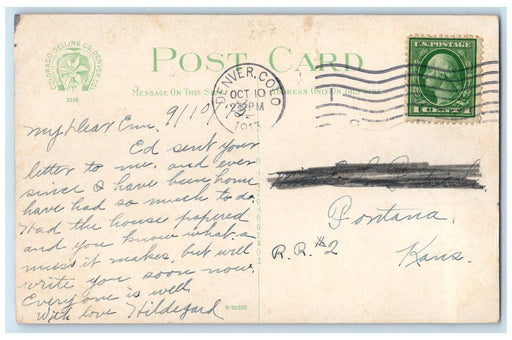 COLORADO-SELLING CO. DENVER, COL.
3036
POST CARD
MESSAGE ON THIS SIDE
ADDRESS ONLY ON THIS SIDE
DENVER, COLO
OCT 10
2 PM
1913
U.S. POSTAGE
1 CENT 1
9/10/13
My Dear Em.
Ed sent your
letter to me, and ever
since I have been home
have had so much to do.
Had the house papered
and you know what a
muss it makes, but will
write you soon now.
Everyone is well
With love Hildegard
Fontana,
R.R. #2
Kans.
R-36320